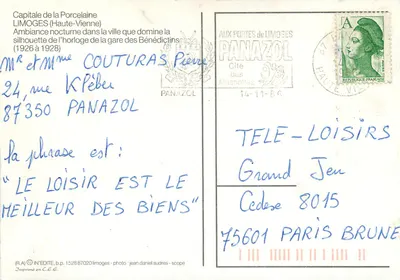 Capitale de la Porcelaine
LIMOGES (Haute-Vienne)
Ambiance nocturne dans la ville que domine la
silhouette de l'horloge de la gare des Bénédictins
(1926 à 1928)
Mr et Mme COUTURAS Pierre
24, rue Kléber
87350 PANAZOL
la phrase est :
"LE LOISIR EST LE
MEILLEUR DES BIENS"
(R.A) © INTER'TE, b.p. 1328 87020 limoges - photo : jean daniel sudres - scope
Imprimé en C.E.E.
AUX PORTES de LIMOGES
PANAZOL
Cité
PANAZOL
A
TELE-LOISIRS
Grand Jeu
Cedex 8015
75601 PARIS BRUNE